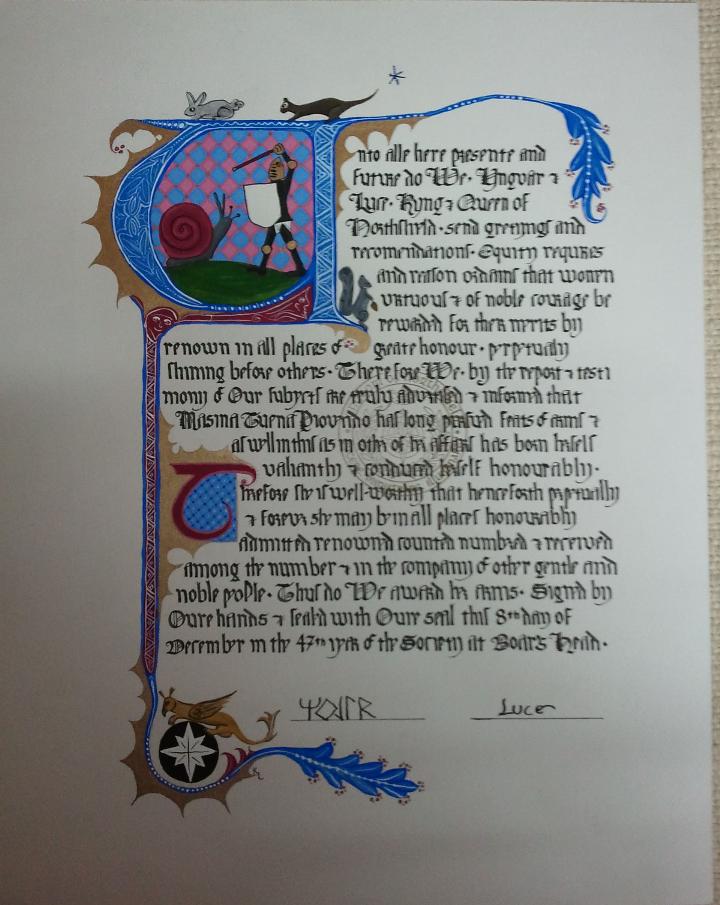 Unto alle here presente and
future do We. Yngvar &
Luce. Kyng & Queen of
Northshield. send gretyngs and
recomendations. Equity requires
and reason ordains that women
virtuous & of noble courage be
rewarded for their merits by
renown in all places of greate honour. perpetually
shining before others. Therefore We. by the report & testi
mony of Our subjects are truly advertised & informed that
Masina has long pursued feats of arms &
as well in this as in other of her affairs has born herself
valiantly & conduced herself honourably.
Therefore she is well-worthy that henceforth perpetually
& forever she may be in all places honourably
admitted renowned counted numbred & received
among the number & in the company of other gentle and
noble people. Thus do We award her arms. Signed by
Oure hands & seald with Oure seal this 8th day of
December in the 47th yeer of the Society at Boar's Head.
Luce